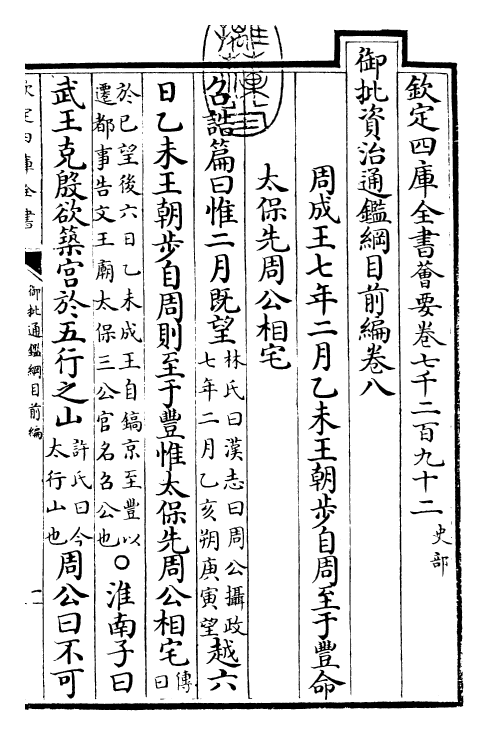 欽定四庫全書薈要卷七千二百九十二 史部
御批資治通鑑綱目前編卷八
周成王七年二月乙未王朝步自周至于豐命
太保先周公相宅
召誥篇曰惟二月既望林氏曰漢志曰周公攝政七年二月乙亥朔庚寅望越六
日乙未王朝步自周則至于豐惟太保先周公相宅傳曰
於已望後六日乙未成王自鎬京至豐以遷都事告文王廟太保三公官名召公也○淮南子曰
武王克殷欲築宫於五行之山許氏曰今太行山也周公曰不可
欽定四庫全書
御批通鑑綱目前編